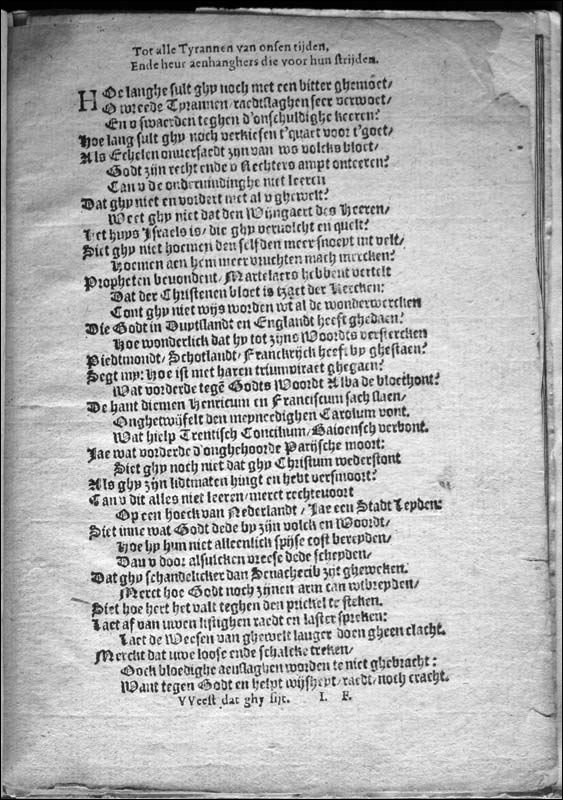 Tot alle Tyrannen van onsen tijden,
Ende heur aenhanghers die voor hun strijden.
HOe langhe sult ghy noch met een bitter ghemoet/
O wreede Tyrannen/ raedtslaghen seer verwoet/
En v swaerden teghen d'onschuldighe keeren?
Hoe lang sult ghy noch verkiesen t'quaet voor t'goet/
Als Echelen onversaedt zijn van ws volcks bloet/
Godt zijn recht ende v Rechters ampt onteeren?
Can v de ondervindinghe niet leeren
Dat ghy niet en vordert met al v ghewelt?
Weet ghy niet dat den Wijngaert des Heeren/
Het huys Israels is/ die ghy vervolcht en quelt?
Siet ghy niet hoemen den selfden meer snoeyt int velt/
Hoemen aen hem meer vruchten mach mercken?
Propheten bevondent/ Martelaers hebbent vertelt
Dat der Christenen bloet is tzaet der Kercken:
Cont ghy niet wijs worden wt al de wonderwercken
Die Godt in Duytslandt en Englandt heeft ghedaen?
Hoe wonderlick dat hy tot zijns Woordts verstercken
Piedtmondt/ Schotlandt/ Franckrijck heeft by ghestaen?
Segt my: Hoe ist met haren triumviraet ghegaen?
Wat vorderde tegē Godts Woordt Alba de bloethont?
De hant diemen Henricum en Franciscum sach slaen/
Onghetwijfelt den meyneedighen Carolum vont.
Wat hielp Trentisch Concilium/ Baioensch verbont.
Jae wat vorderde d'onghehoorde Parijsche moort:
Siet ghy noch niet dat ghy Christum wederstont
Als ghy zijn lidtmaten hingt en hebt versmoort?
Can v dit alles niet leeren/ merct rechtevoort
Op een hoeck van Nederlandt/ Jae een Stadt Leyden:
Siet inne wat Godt dede by zijn volck en Woordt/
Hoe hy hun niet alleenlick spijse cost bereyden/
Dan v door alsulcken vreese dede scheyden/
Dat ghy schandelicker dan Senacherib zijt gheweken.
Merct hoe Godt noch zijnen arm can wtbreyden/
Siet hoe hert het valt teghen den prickel te steken.
Laet af van uwen listighen raedt en laster spreken:
Laet de Weesen van ghewelt langer doen gheen clacht.
Merckt dat uwe loose ende schalcke treken/
Oock bloedighe aenslaghen worden te niet ghebracht:
Want tegen Godt en helpt wijsheyt/ raedt/ noch cracht.
VVeest dat ghy sijt. I. F.